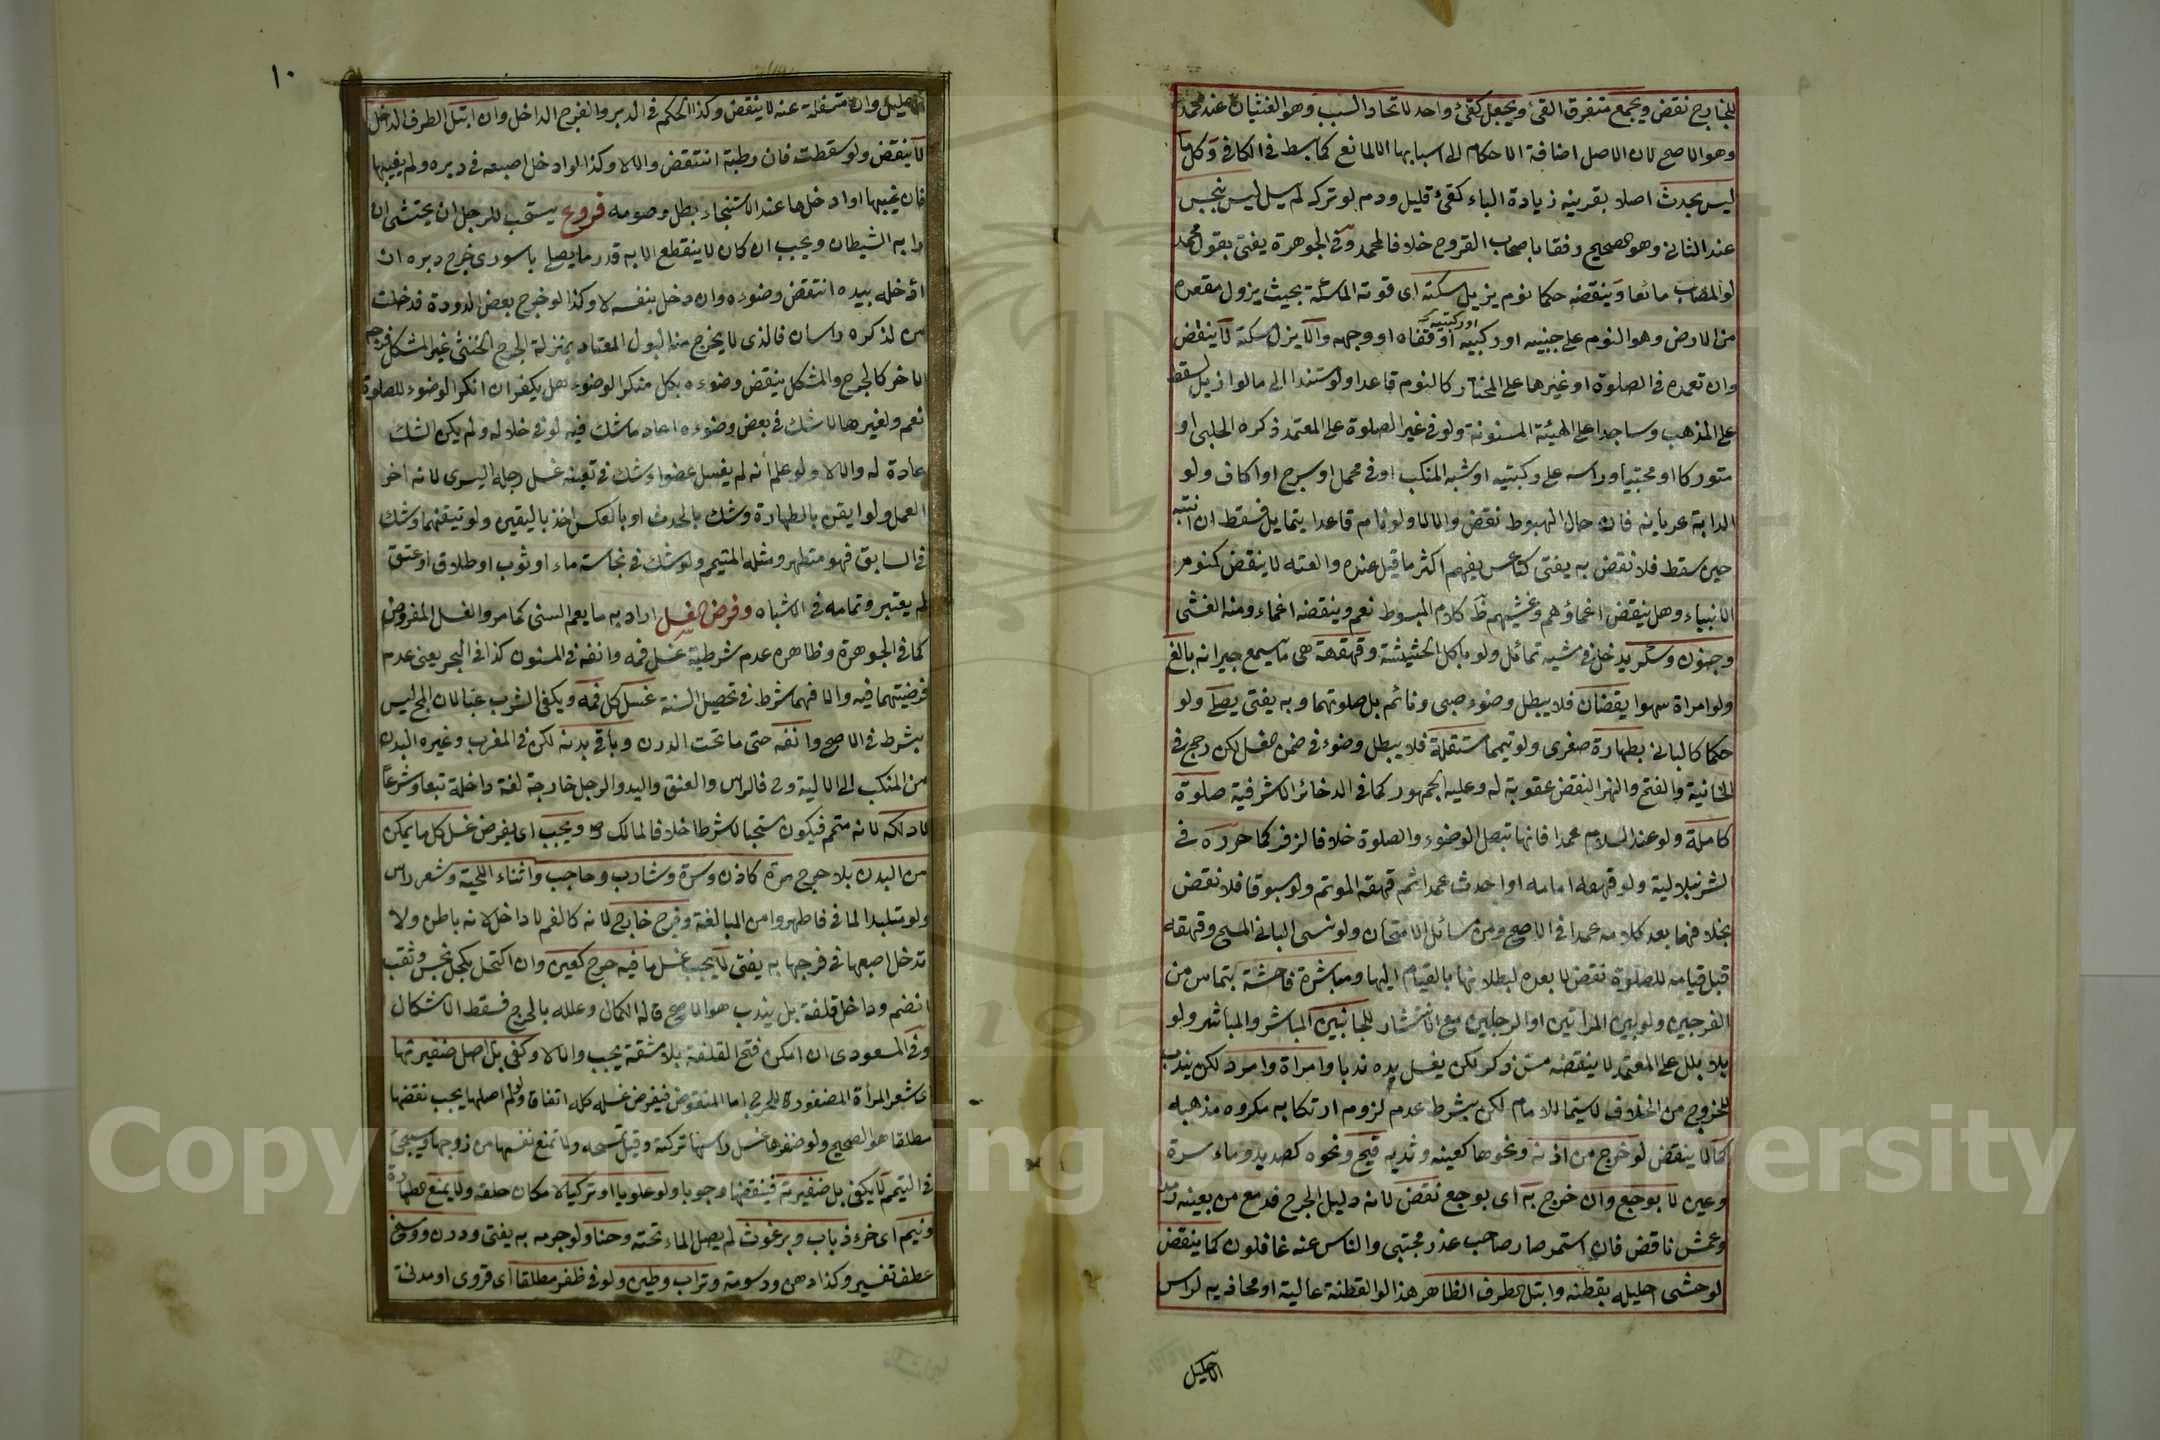 للخارج نقض ويجمع متفرق القئ ويجعل كقئ واحد لاتحاد السبب وهو الغثيان عند محمد
وهو الاصح لان الاصل اضافة الاحكام الى اسبابها الا لمانع كما بسط في الكافي وكل ما
ليس بحدث اصلا بقرينه زيادة الباء كقئ قليل ودم لو ترك لم يسل ليس بنجس
عند الثاني وهو الصحيح رفقا باصحاب القروح خلافا لمحمد وفي الجوهرة يفتى بقول محمد
لو المصاب مائعا وينقضه حكما نوم يزيل مسكته اى قوته الماسكة بحيث يزول مقعده
من الارض وهو النوم على جنبيه او ركبيه او قفاه او وجهه والا يزل مسكته لا ينقض
او ركبتيه
وان تعمده في الصلوة او غيرها على المختار كالنوم قاعدا ولو مستندا الى ما لو ازيل لسقط
على المذهب وساجدا على الهيئة المسنونة ولو في غير الصلوة على المعتمد ذكره الحلبي او
متوركا او محتبيا وراسه على ركبتيه او شبه المنكب او في محمل او سرج او اكاف ولو
الدابة عريانه فان حال الهبوط نقض والا لا ولو نام قاعدا يتمايل فسقط ان انتبه
حين سقط فلا نقض به يفتى كناعس يفهم اكثر ما قيل عنده والعته لا ينقض كنوم
الانبياء وهل ينقض اغماؤهم وغشيهم ظ كلام المبسوط نعم وينقضه اغماء ومنه الغشى
وجنون وسكر يدخل في مشيه تمائل ولو باكل الحشيشة وقهقهة هى ما يسمع جيرانه بالغ
ولو امراة سهوا يقضان فلا يبطل وضوء صبى ونائم بل صلوتهما وبه يفتى يصلى ولو
حكما كالبانى بطهارة صغرى ولو تيمما مستقلة فلا يبطل وضوء في ضمن الغسل لكن رجح في
الخانية والفتح والنهر النقض عقوبة له وعليه الجمهور كما في الذخائر الاشرفية صلوة
كاملة ولو عند السلام عمدا فانها تبطل الوضوء والصلوة خلافا لزفر كما حرره في
لشرنبلالية ولو قهقه امامه او احدث عمدا ثم قهقه الموتم ولو مسبوقا فلا نقض
بخلافهما بعد كلامه عمدا في الاصح ومن مسائل الامتحان ولو نسى البانى المسح وقهقه
قبل قيامه للصلوة نقض لا بعده لبطلانها بالقيام اليها ومباشرة فاحشة بتماس من
الفرجين ولو بين المراتين او الرجلين مع الانتشار للجانبين المباشر والمباشر ولو
بلا بلل على المعتمد لا ينقضه مس ذكر لكن يغسل يده ندبا وامراة وامرد لكن يندب
للخروج من الخلاف لا سيما للامام لكن بشرط عدم لزوم ارتكابه مكروه مذهبه
كما لا ينقض لو خرج من اذنه ونحوها كعينه وثديه قيح ونحوه كصديد وماء سرة
وعين لا بوجع وان خرج به اى بوجع نقض لانه دليل الجرح فدمع من بعينه رمد
وعمش ناقض فان استمر صار صاحب عذر مجتبى والناس عنه غافلون كما ينقض
لو حشى احليله بقطنه وابتل الطرف الظاهر هذا لو القطنة عالية او محاذيه لراس
الاحليل
١٠
الاحليل وان متسفلة عنه لا ينقض وكذا الحكم في الدبر والفرج الداخل وان ابتل الطرف الداخل
لا ينقض ولو سقطت فان رطبة انتقض والا لا وكذا لو ادخل اصبعه في دبره ولم يغيبها
فان غيبها او ادخلها عند الاستنجاء بطل وصومه فروع يستحب للرجل ان يحتشى ان
رابه الشيطان ويجب ان كان لا ينقطع الا به قدر ما يصلى باسورى خرج دبره ان
ادخله بيده انتقض وضوءه وان دخل بنفسه لا وكذا لو خرج بعض الدودة فدخلت
من لذكره راسان فالذى لا يخرج منه البول المعتاد بمنزلة الجرح الخنثى غير المشكل فرجه
الاخر كالجرح والمشكل ينقض وضوءه بكل منكر الوضوء هل يكفر ان انكر الوضوء للصلوة
نعم ولغيرها لا شك في بعض وضوءه اعاد ما شك فيه لو في خلاله ولم يكن الشك
عادة له والا لا ولو علم انه لم يغسل عضوا وشك في تعينه غسل رجله اليسرى لانه اخر
العمل ولو ايقن بالطهارة وشك بالحدث او بالعكس اخذ باليقين ولو تيقنهما وشك
في السابق فهو متطهر ومثله المتيمم ولو شك في نجاسة ماء او ثوب او طلاق او عتق
لم يعتبر وتمامه في الاشباه وفرض الغسل اراد به ما يعم السنى كما مر والغسل المفروض
كما في الجوهرة وظاهره عدم شرطية غسل فمه وانفه في المسنون كذا في البحر يعنى عدم
فرضيتهما فيه والا فهما شرط في تحصيل السنة غسل كل فمه ويكفى الشرب عبا لان المج ليس
بشرط في الاصح وانفه حتى ما تحت الدرن وباقى بدنه لكن في المغرب وغيره البدن
من المنكب الى الالية وح فالراس والعنق واليد والرجل خارجة لغة داخلة تبعا وشرعا
لا دلكه لانه متمم فيكون مستحبا لا شرطا خلافا لمالك ويجب اى يفرض غسل كل ما يمكن
من البدن بلا حرج مرة كاذن وسرة وشارب وحاجب واثناء اللحية وشعر راس
ولو متلبدا لما في فاطهروا من المبالغة وفرج خارج لانه كالفم لا داخل لانه باطن ولا
تدخل اصبعها في فرجها به يفتى لا يجب غسل ما فيه حرج كعين وان اكتحل بكحل نجس وثقب
انضم وداخل قلفة بل يندب هو الاصح قاله الكمال وعلله بالحرج فسقط الاشكال
وفي المسعودى ان امكن فتح القلفة بلا مشقة يجب والا لا وكفى بل اصل ضفيرتها
شعر المرأة المضفورة للحرج اما المنقوض فيفرض غسله كله اتفاقا ولو لم اصلها يجب نقضها
مطلقا هو الصحيح ولو ضفرها غسل راسها تركته وقيل تمسحه ولا تمنع نفسها من زوجها وسيجئ
في التيمم لا يكفى بل ضفيرته فينقضها وجوبا ولو علويا او تركيا لامكان حلقه ولا يمنع الطهارة
ونيم اى خرء ذباب وبرغوث لم يصل الماء تحته وحنا ولو جرمه به يفتى ودرن ووسخ
عطف تفسير وكذا دهن ودسومة وتراب وطين ولو في ظفر مطلقا اى قروى او مدنى
Copyright © King Saud University